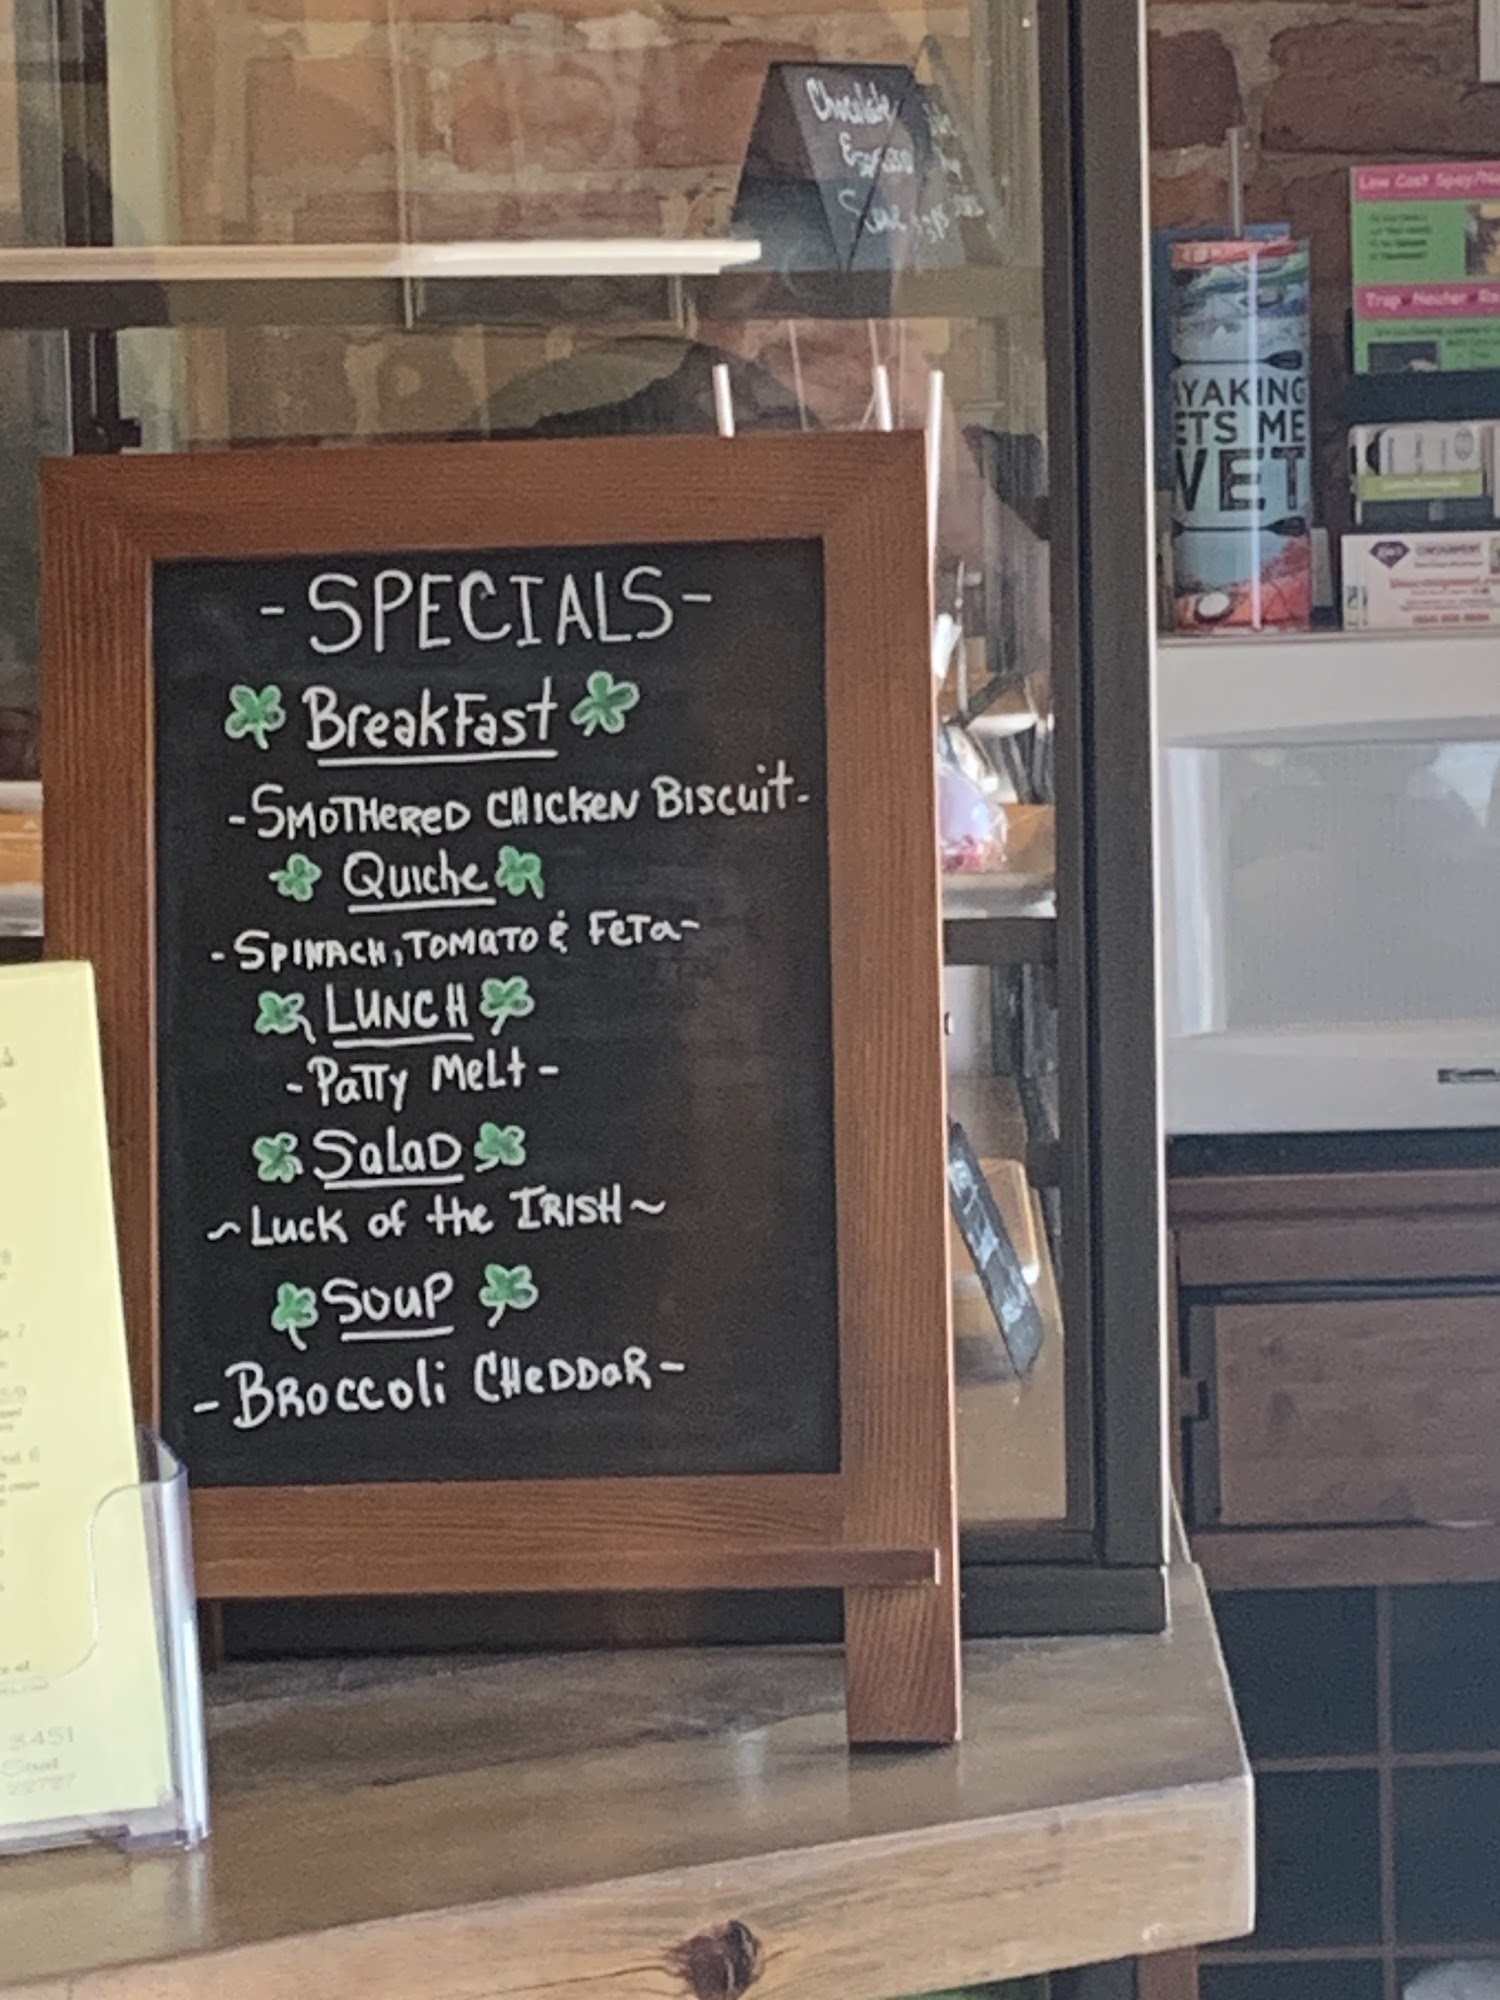 Chocolate
Espresso
- SPECIALS -
BreakFast
- SMOTHERED CHICKEN BISCUIT -
Quiche
- SPINACH, TOMATO & FETA -
LUNCH
- PATTY MELT -
SALAD
~ Luck of the IRISH ~
SOUP
- BROCCOLI CHEDDAR -
Low Cost Spay/
Trap Neuter
AYAKING
ETS ME
WET
CONSIGNMENT
8451